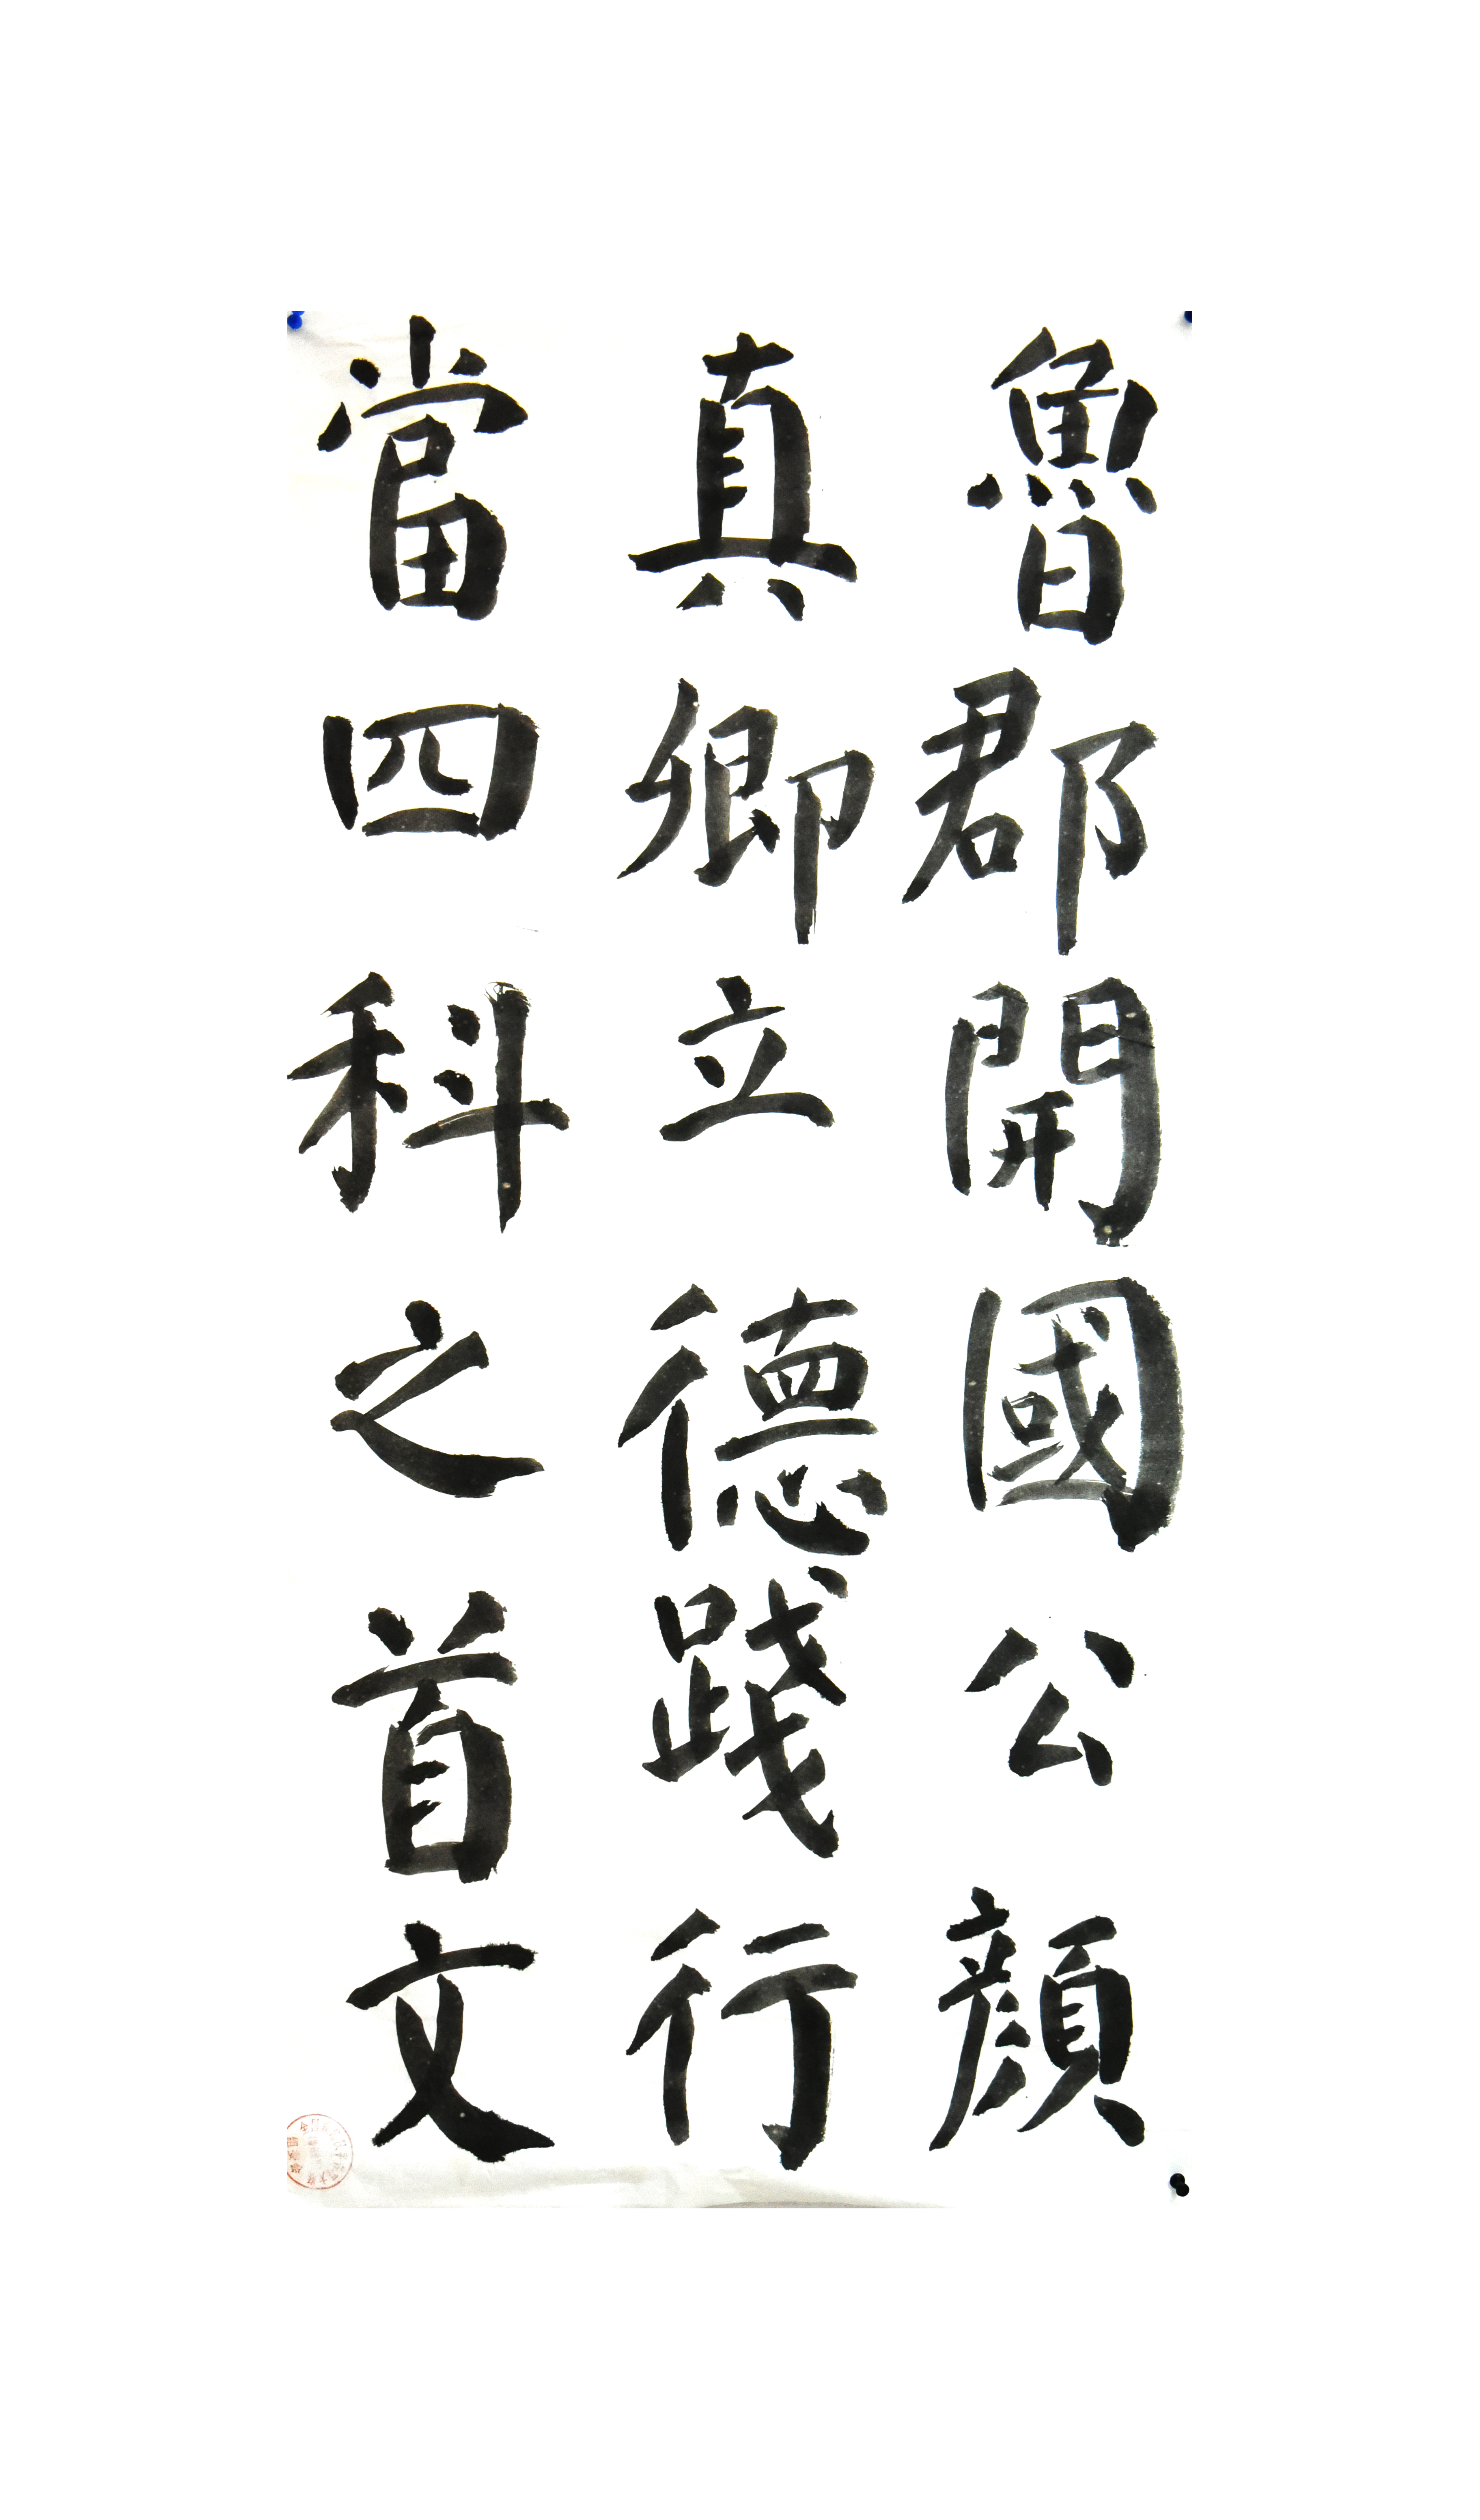 魯郡開國公顔
真卿立德踐行
當四科之首文